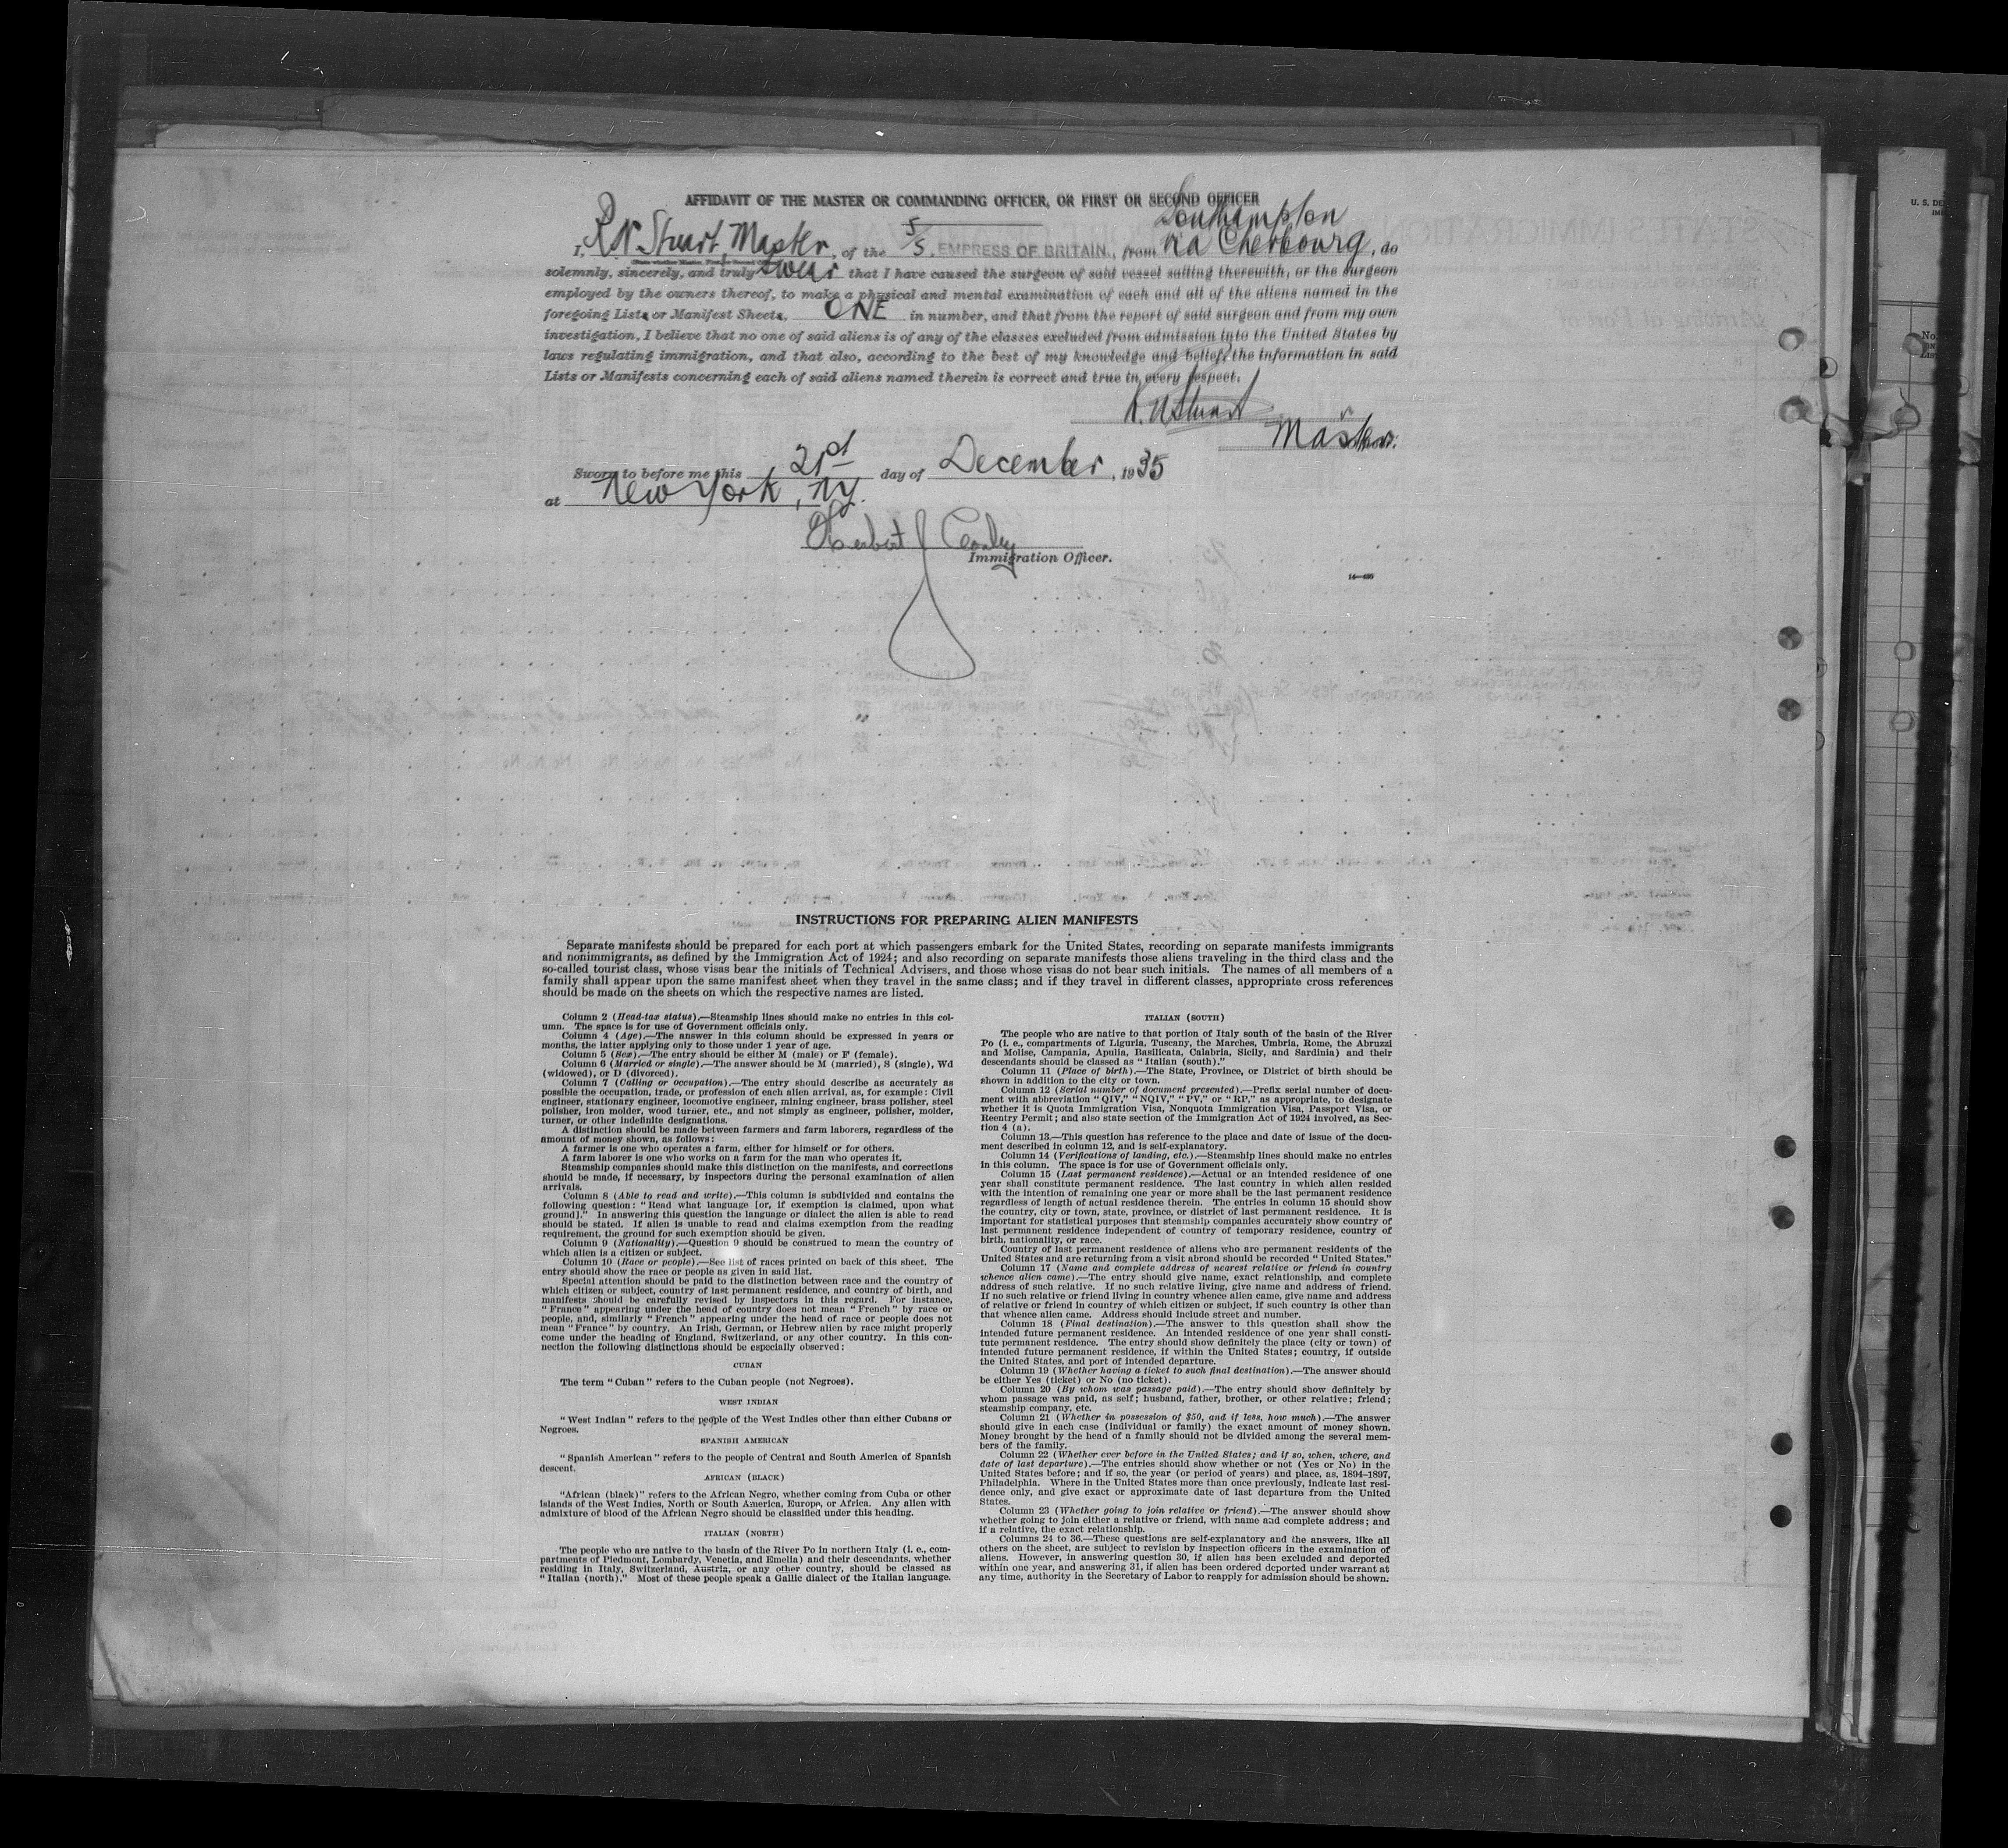 AFFIDAVIT OF THE MASTER OR COMMANDING OFFICER, OR FIRST OR SECOND OFFICER
Southampton
I, R.N. Stuart, Master, of the S/S. EMPRESS OF BRITAIN, from via Cherbourg, do
solemnly, sincerely, and truly swear that I have caused the surgeon of said vessel sailing therewith, or the surgeon
employed by the owners thereof, to make a physical and mental examination of each and all of the aliens named in the
foregoing Lists or Manifest Sheets, ONE in number, and that from the report of said surgeon and from my own
investigation, I believe that no one of said aliens is of any of the classes excluded from admission into the United States by
laws regulating immigration, and that also, according to the best of my knowledge and belief, the information in said
Lists or Manifests concerning each of said aliens named therein is correct and true in every respect.
R. N Stuart
Master.
Sworn to before me this 21st day of December, 1935
at New York, NY.
Herbert J
Immigration Officer.
INSTRUCTIONS FOR PREPARING ALIEN MANIFESTS
Separate manifests should be prepared for each port at which passengers embark for the United States, recording on separate manifests immigrants
and nonimmigrants, as defined by the Immigration Act of 1924; and also recording on separate manifests those aliens traveling in the third class and the
so-called tourist class, whose visas bear the initials of Technical Advisers, and those whose visas do not bear such initials. The names of all members of a
family shall appear upon the same manifest sheet when they travel in the same class; and if they travel in different classes, appropriate cross references
should be made on the sheets on which the respective names are listed.
Column 2 (Head-tax status).—Steamship lines should make no entries in this col-
umn. The space is for use of Government officials only.
Column 4 (Age).—The answer in this column should be expressed in years or
months, the latter applying only to those under 1 year of age.
Column 5 (Sex).—The entry should be either M (male) or F (female).
Column 6 (Married or single).—The answer should be M (married), S (single), Wd
(widowed), or D (divorced).
Column 7 (Calling or occupation).—The entry should describe as accurately as
possible the occupation, trade, or profession of each alien arrival, as, for example: Civil
engineer, stationary engineer, locomotive engineer, mining engineer, brass polisher, steel
polisher, iron molder, wood turner, etc., and not simply as engineer, polisher, molder,
turner, or other indefinite designations.
A distinction should be made between farmers and farm laborers, regardless of the
amount of money shown, as follows:
A farmer is one who operates a farm, either for himself or for others.
A farm laborer is one who works on a farm for the man who operates it.
Steamship companies should make this distinction on the manifests, and corrections
should be made, if necessary, by inspectors during the personal examination of alien
arrivals.
Column 8 (Able to read and write).—This column is subdivided and contains the
following question: "Read what language [or, if exemption is claimed, upon what
ground]." In answering this question the language or dialect the alien is able to read
should be stated. If alien is unable to read and claims exemption from the reading
requirement, the ground for such exemption should be given.
Column 9 (Nationality).—Question 9 should be construed to mean the country of
which alien is a citizen or subject.
Column 10 (Race or people).—See list of races printed on back of this sheet. The
entry should show the race or people as given in said list.
Special attention should be paid to the distinction between race and the country of
which citizen or subject, country of last permanent residence, and country of birth, and
manifests should be carefully revised by inspectors in this regard. For instance,
"France" appearing under the head of country does not mean "French" by race or
people, and, similarly "French" appearing under the head of race or people does not
mean "France" by country. An Irish, German, or Hebrew alien by race might properly
come under the heading of England, Switzerland, or any other country. In this con-
nection the following distinctions should be especially observed:
CUBAN
The term "Cuban" refers to the Cuban people (not Negroes).
WEST INDIAN
"West Indian" refers to the people of the West Indies other than either Cubans or
Negroes.
SPANISH AMERICAN
"Spanish American" refers to the people of Central and South America of Spanish
descent.
AFRICAN (BLACK)
"African (black)" refers to the African Negro, whether coming from Cuba or other
islands of the West Indies, North or South America, Europe, or Africa. Any alien with
admixture of blood of the African Negro should be classified under this heading.
ITALIAN (NORTH)
The people who are native to the basin of the River Po in northern Italy (i. e., com-
partments of Piedmont, Lombardy, Venetia, and Emelia) and their descendants, whether
residing in Italy, Switzerland, Austria, or any other country, should be classed as
"Italian (north)." Most of these people speak a Gallic dialect of the Italian language.
ITALIAN (SOUTH)
The people who are native to that portion of Italy south of the basin of the River
Po (i. e., compartments of Liguria, Tuscany, the Marches, Umbria, Rome, the Abruzzi
and Molise, Campania, Apulia, Basilicata, Calabria, Sicily, and Sardinia) and their
descendants should be classed as "Italian (south)."
Column 11 (Place of birth).—The State, Province, or District of birth should be
shown in addition to the city or town.
Column 12 (Serial number of document presented).—Prefix serial number of docu-
ment with abbreviation "QIV," "NQIV," "PV," or "RP," as appropriate, to designate
whether it is Quota Immigration Visa, Nonquota Immigration Visa, Passport Visa, or
Reentry Permit; and also state section of the Immigration Act of 1924 involved, as Sec-
tion 4 (a).
Column 13.—This question has reference to the place and date of issue of the docu-
ment described in column 12, and is self-explanatory.
Column 14 (Verifications of landing, etc.).—Steamship lines should make no entries
in this column. The space is for use of Government officials only.
Column 15 (Last permanent residence).—Actual or an intended residence of one
year shall constitute permanent residence. The last country in which alien resided
with the intention of remaining one year or more shall be the last permanent residence
regardless of length of actual residence therein. The entries in column 15 should show
the country, city or town, state, province, or district of last permanent residence. It is
important for statistical purposes that steamship companies accurately show country of
last permanent residence independent of country of temporary residence, country of
birth, nationality, or race.
Country of last permanent residence of aliens who are permanent residents of the
United States and are returning from a visit abroad should be recorded "United States."
Column 17 (Name and complete address of nearest relative or friend in country
whence alien came).—The entry should give name, exact relationship, and complete
address of such relative. If no such relative living, give name and address of friend.
If no such relative or friend living in country whence alien came, give name and address
of relative or friend in country of which citizen or subject, if such country is other than
that whence alien came. Address should include street and number.
Column 18 (Final destination).—The answer to this question shall show the
intended future permanent residence. An intended residence of one year shall consti-
tute permanent residence. The entry should show definitely the place (city or town) of
intended future permanent residence, if within the United States; country, if outside
the United States, and port of intended departure.
Column 19 (Whether having a ticket to such final destination).—The answer should
be either Yes (ticket) or No (no ticket).
Column 20 (By whom was passage paid).—The entry should show definitely by
whom passage was paid, as self; husband, father, brother, or other relative; friend;
steamship company, etc.
Column 21 (Whether in possession of $50, and if less, how much).—The answer
should give in each case (individual or family) the exact amount of money shown.
Money brought by the head of a family should not be divided among the several mem-
bers of the family.
Column 22 (Whether ever before in the United States; and if so, when, where, and
date of last departure).—The entries should show whether or not (Yes or No) in the
United States before; and if so, the year (or period of years) and place, as, 1894–1897,
Philadelphia. Where in the United States more than once previously, indicate last resi-
dence only, and give exact or approximate date of last departure from the United
States.
Column 23 (Whether going to join relative or friend).—The answer should show
whether going to join either a relative or friend, with name and complete address; and
if a relative, the exact relationship.
Columns 24 to 36.—These questions are self-explanatory and the answers, like all
others on the sheet, are subject to revision by inspection officers in the examination of
aliens. However, in answering question 30, if alien has been excluded and deported
within one year, and answering 31, if alien has been ordered deported under warrant at
any time, authority in the Secretary of Labor to reapply for admission should be shown.